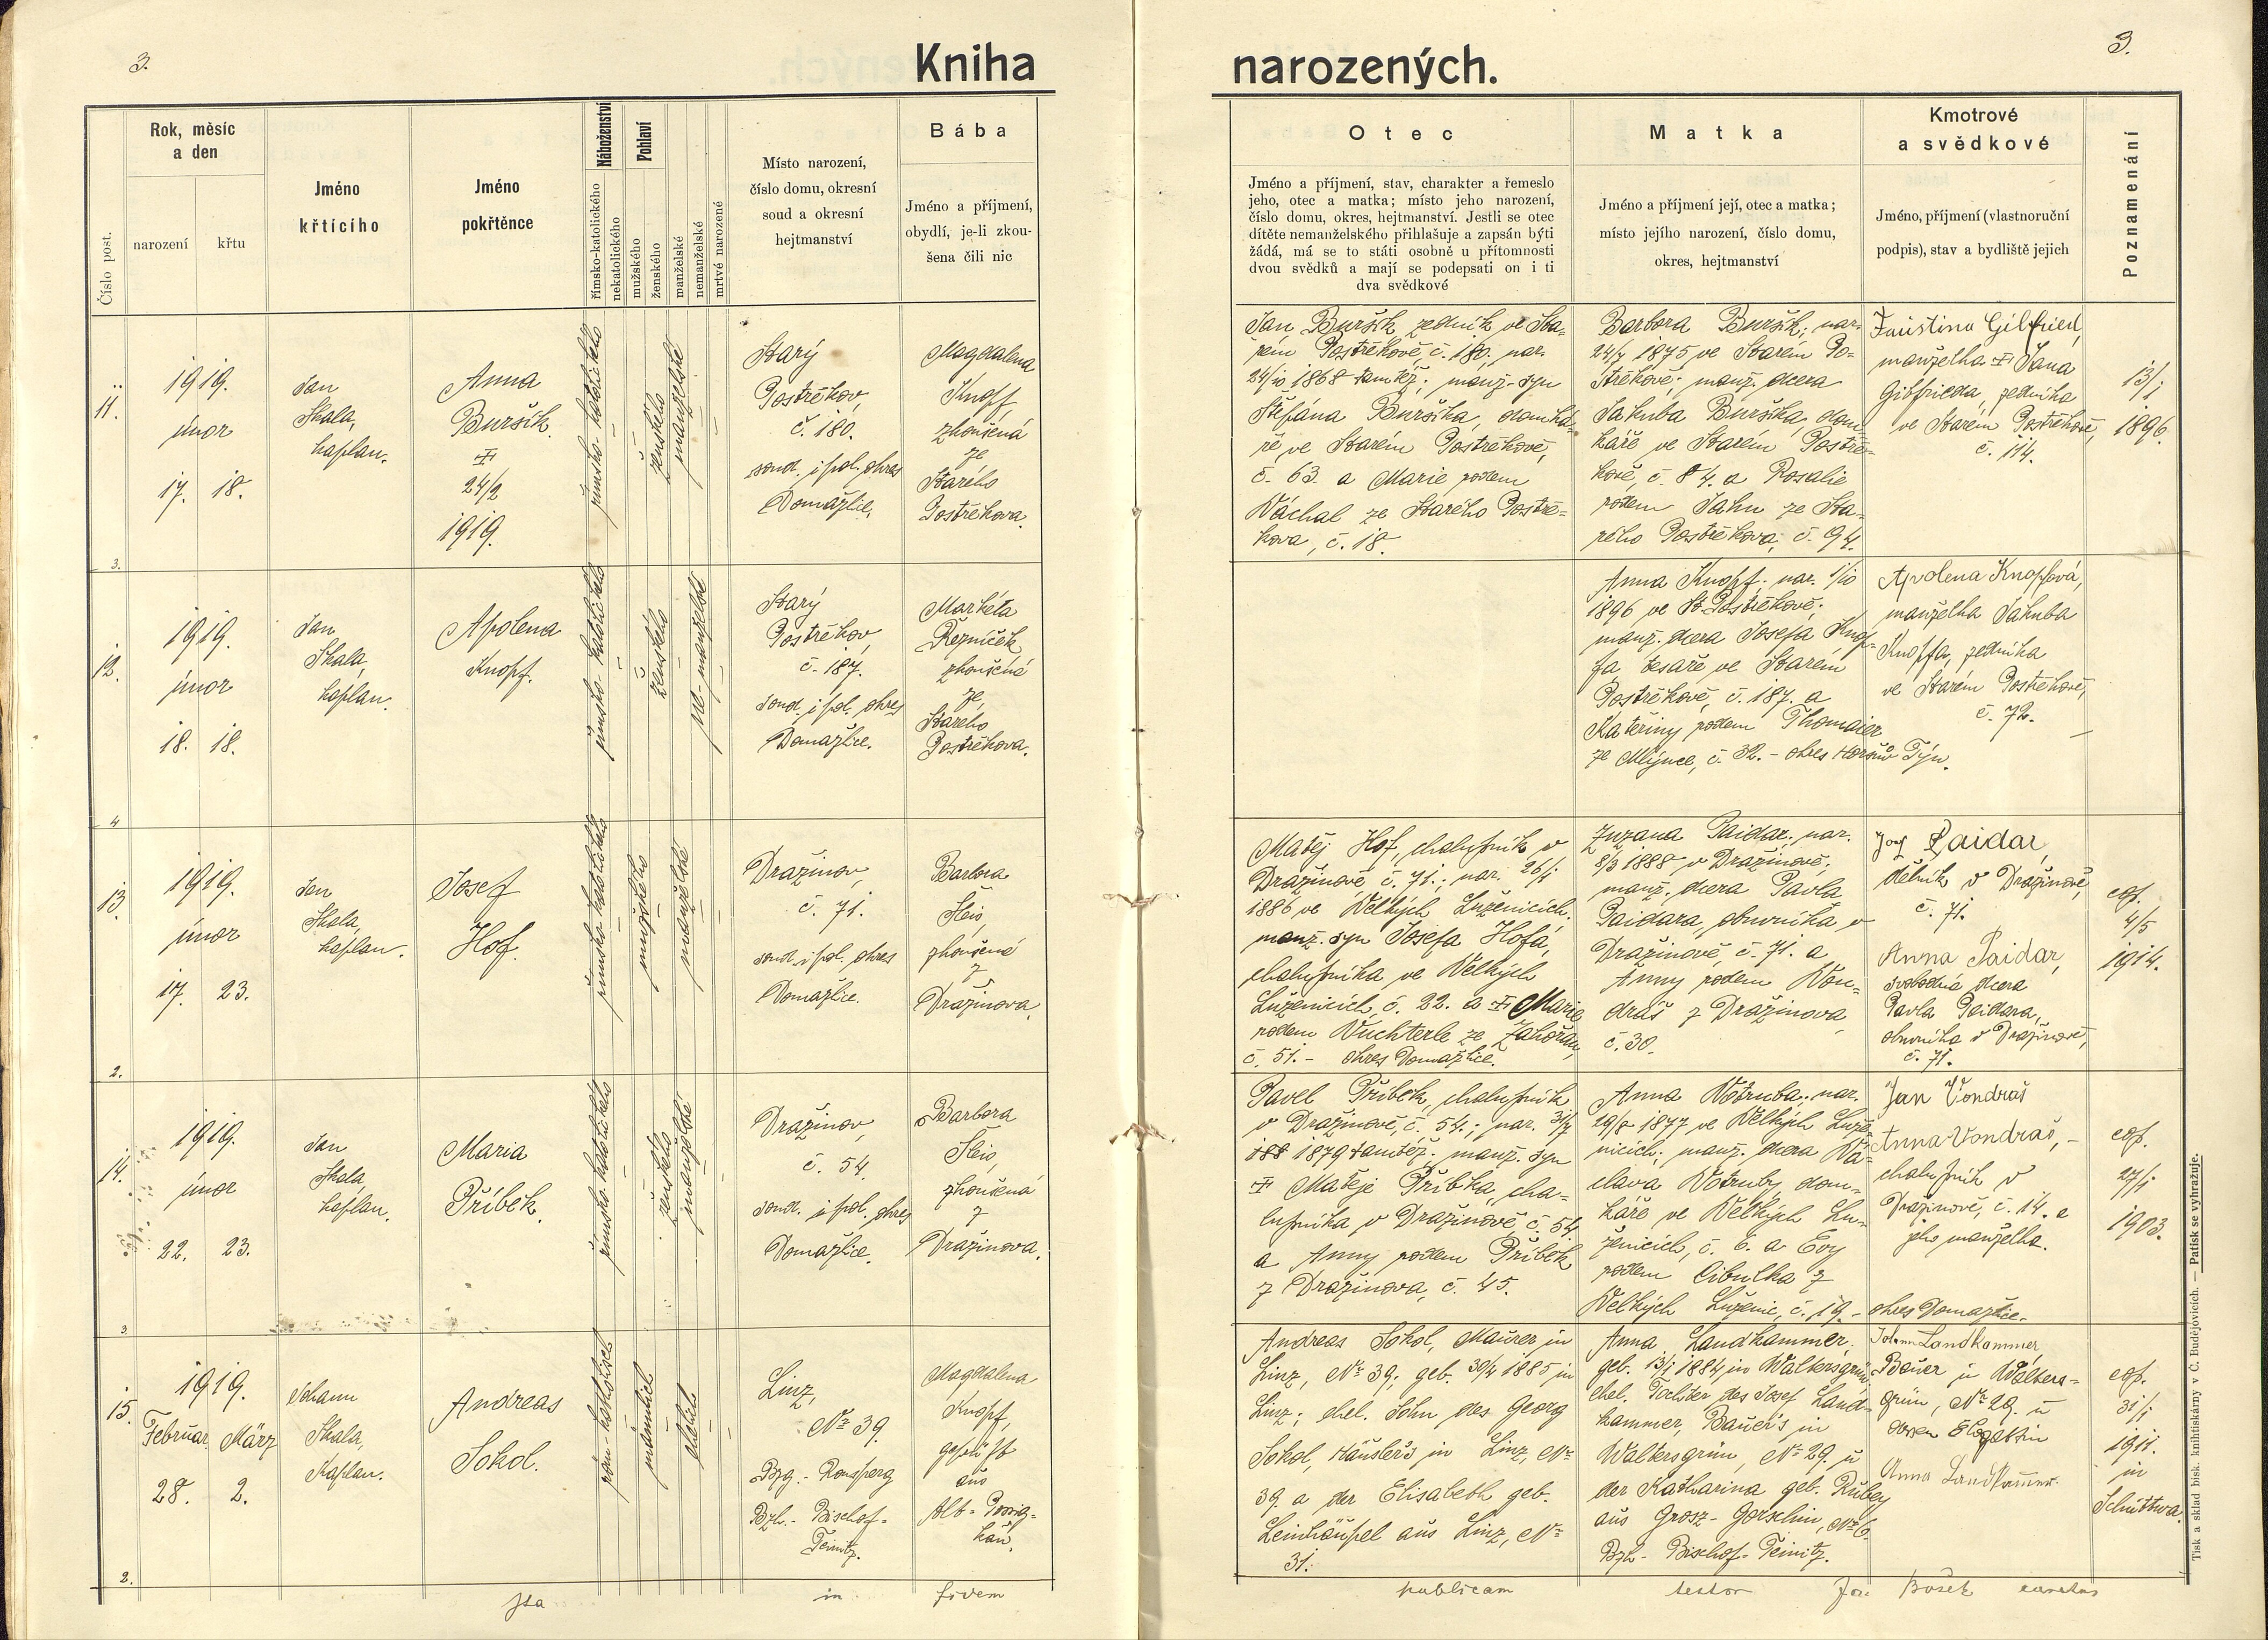 3.
Kniha
narozených.
3.
Číslo post.
Rok, měsíc
a den
narození
křtu
Jméno
křtícího
Jméno
pokřtěnce
Náboženství
římsko-katolického
nekatolického
Pohlaví
mužského
ženského
manželské
nemanželské
mrtvě narozené
Místo narození,
číslo domu, okresní
soud a okresní
hejtmanství
Bába
Jméno a příjmení,
obydlí, je-li zkou-
šena čili nic
Otec
Jméno a příjmení, stav, charakter a řemeslo
jeho, otec a matka; místo jeho narození,
číslo domu, okres, hejtmanství. Jestli se otec
dítěte nemanželského přihlašuje a zapsán býti
žádá, má se to státi osobně u přítomnosti
dvou svědků a mají se podepsati on i ti
dva svědkové
Matka
Jméno a příjmení její, otec a matka;
místo jejího narození, číslo domu,
okres, hejtmanství
Kmotrové
a svědkové
Jméno, příjmení (vlastnoruční
podpis), stav a bydliště jejich
Poznamenání
11.
1919.
únor
17. 18.
3.
Jan
Skala,
kaplan.
Anna
Buršík.
24/2
1919.
římsko-katolického
ženského
manželské
Starý
Postřekov,
č. 180.
soud. i pol. okres
Domažlice.
Magdalena
Knopf,
zkoušená
ze
Starého
Postřekova.
Jan Buršík, zedník ve Sta-
rém Postřekově, č. 180., nar.
24/10 1868 tamtéž; manž. syn
Štefána Buršíka, domká-
ře ve Starém Postřekově,
č. 63. a Marie rodem
Váchal ze Starého Postře-
kova, č. 18.
Barbora Buršík; nar.
24/7 1875 ve Starém Po-
střekově; manž. dcera
Jakuba Buršíka, dom-
káře ve Starém Postře-
kově, č. 84. a Rosalie
rodem Jahn ze Sta-
rého Postřekova, č. 94.
Faustina Gilfried,
manželka Jana
Gilfrieda, zedníka
ve Starém Postřekově,
č. 114.
13/1
1896.
12.
1919.
únor
18. 18.
4
Jan
Skala,
kaplan.
Apolena
Knopf.
římsko-katolického
ženského
ne-manželské
Starý
Postřekov,
č. 187.
soud. i pol. okres
Domažlice.
Markéta
Řezníček
zkoušená
ze
Starého
Postřekova.
Anna Knopf; nar. 1/10
1896 ve St. Postřekově;
manž. dcera Josefa Knop-
fa tesaře ve Starém
Postřekově, č. 187. a
Kateřiny rodem Thomaier
ze Mlýnce, č. 32. - okres Horšův Týn.
Apolena Knopfová,
manželka Jakuba
Knopfa, zedníka
ve Starém Postřekově,
č. 72.
13.
1919.
únor
17. 23.
2.
Jan
Skala,
kaplan.
Josef
Hof.
římsko-katolického
mužského
manželské
Dražinov,
č. 71.
soud. i pol. okres
Domažlice.
Barbora
Šleis,
zkoušená
z
Dražinova.
Matěj Hof, chalupník v
Dražinově č. 71.; nar. 26/1
1886 ve Velkých Luženicích.
manž. syn Josefa Hofa,
chalupníka ve Velkých
Luženicích, č. 22. a Marie
rodem Wuchterle ze Zahořan,
č. 51. - okres Domažlice.
Zuzana Paidar; nar.
8/3 1888 v Dražinově;
manž. dcera Pavla
Paidara, obuvníka v
Dražinově, č. 71. a
Anny rodem Von-
draš z Dražinova,
č. 30.
Josef Paidar,
dělník v Dražinově,
č. 71.
Anna Paidar,
svobodná dcera
Pavla Paidara,
obuvníka v Dražinově,
č. 71.
cop.
4/5
1914.
14.
1919.
únor
22. 23.
3.
Jan
Skala,
kaplan.
Maria
Příbek.
římsko-katolického
ženského
manželské
Dražinov,
č. 54.
soud. i pol. okres
Domažlice.
Barbora
Šleis,
zkoušená
z
Dražinova.
Pavel Příbek, chalupník
v Dražinově, č. 54.; nar. 31/7
188 1879 tamtéž; manž. syn
Matěje Příbka, cha-
lupníka v Dražinově č. 54.
a Anny rodem Příbek
z Dražinova, č. 45.
Anna Votruba; nar.
19/8 1877 ve Velkých Luže-
nicích; manž. dcera Vá-
clava Votruby, dom-
káře ve Velkých Lu-
ženicích, č. 6. a Evy
rodem Cibulka z
Velkých Luženic, č. 19. - okres Domažlice.
Jan Vondraš
Anna Vondraš, -
chalupník v
Dražinově, č. 14. a
jeho manželka.
cop.
27/1
1903.
15.
1919.
Februar März
28. 2.
2.
Johann
Skala,
Kaplan.
Andreas
Sokol.
röm-katholisch
männlich
ehelich
Linz,
No 39.
Bzg. - Ronsperg
Bzh. - Bischof-
Teinitz.
Magdalena
Knopf,
geprüft
aus
Alt-Possig-
kau.
Andreas Sokol, Maurer in
Linz, No 39; geb. 30/4 1885 in
Linz; ehel. Sohn des Georg
Sokol, Häuslers in Linz, No
39. a der Elisabeth geb.
Leinhäupel aus Linz, No
31.
Anna Landkammer,
geb. 13/1 1884 in Waltersgrün
ehel. Tochter des Josef Land-
kammer, Bauers in
Waltersgrün, No 29. u
der Katharina geb. Rubey
aus Grosz-Gorschin, No 6.
Bzh- Bischof-Teinitz.
Johann Landkammer
Bauer in Walters-
grün, No 29. u
dessen Ehegattin
Anna Landkammer
cop.
31/1
1911.
in
Schüttwa.
Ita in fidem publicam testor Jos. Bošek curatus
Tisk a sklad bisk. knihtiskárny v Č. Budějovicích. — Patisk se vyhrazuje.